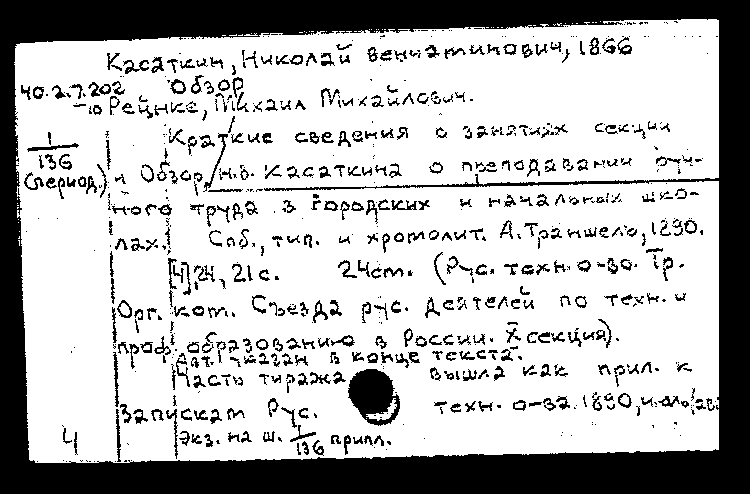 Касаткин, Николай Вениаминович, 1866
40.2.7.202 Обзор
-10 Рейнке, Михаил Михайлович.
Краткие сведения о занятиях секции
1/136 (период.) и Обзор Н.В. Касаткина о преподавании руч-
ного труда в городских и начальных шко-
лах. Спб., тип. и хромолит. А. Траншель, 1890.
[4], 24, 21 с. 24 см. (Рус. техн. о-во. Тр.
Орг. ком. Съезда рус. деятелей по техн. и
проф. образованию в России. X секция).
Авт. указан в конце текста.
Часть тиража вышла как прил. к
Запискам Рус. техн. о-ва. 1890,
4 Экз. на ш. 1/136 припл.